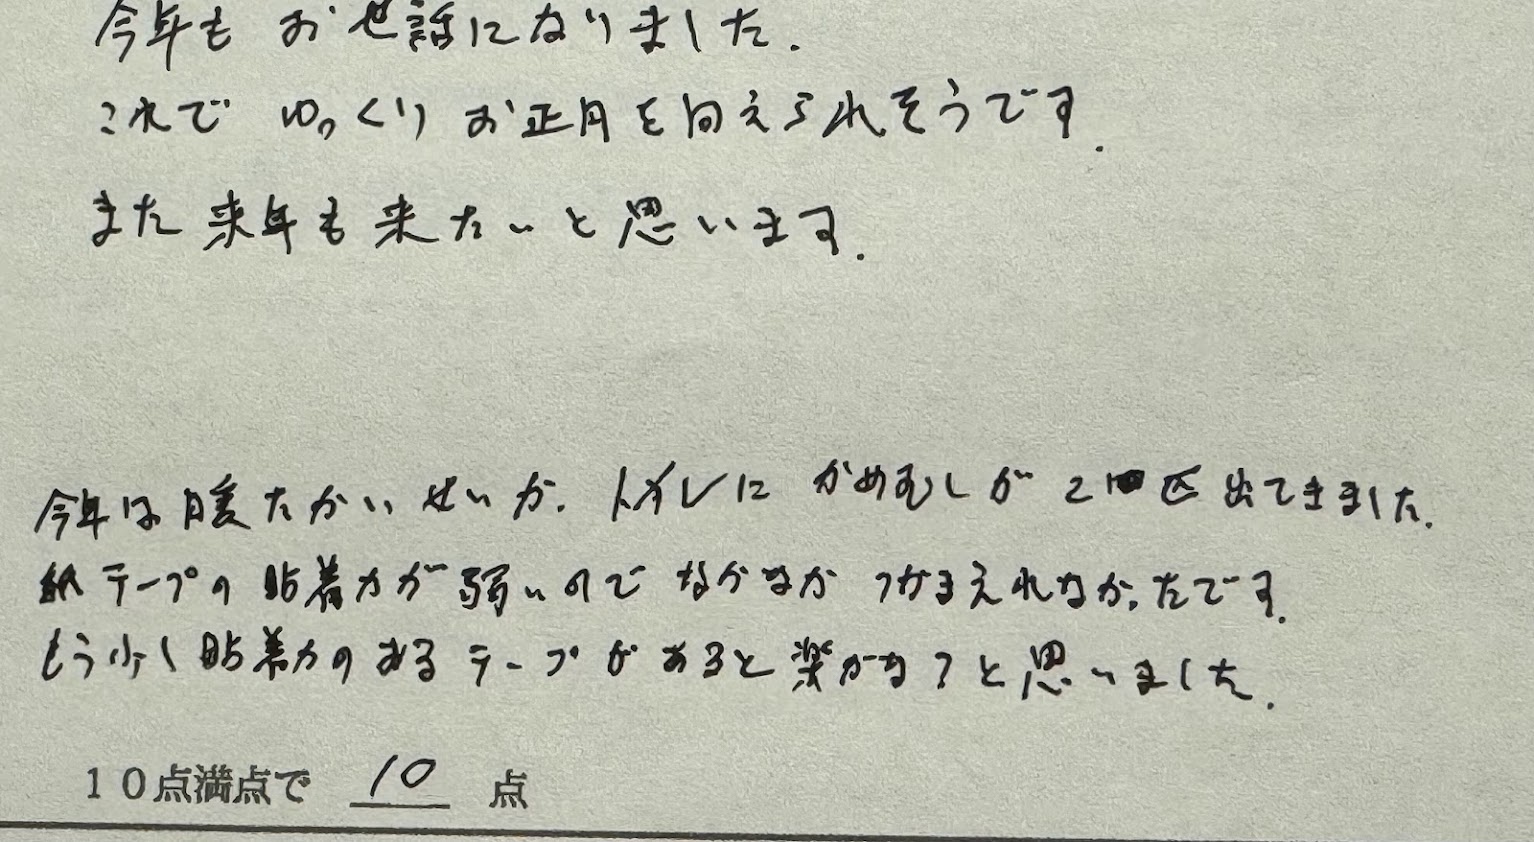 今年もお世話になりました.
これで ゆっくり お正月を向えられそうです.
また来年も来たいと思います.
今年は暖たかいせいか. トイレに かめむしが 2匹 出てきました.
紙テープの 貼着力が 弱いので なかなか つかまえれなかったです.
もう少し 貼着力の ある テープが あると 楽かな?と思いました.
10点満点で 10 点